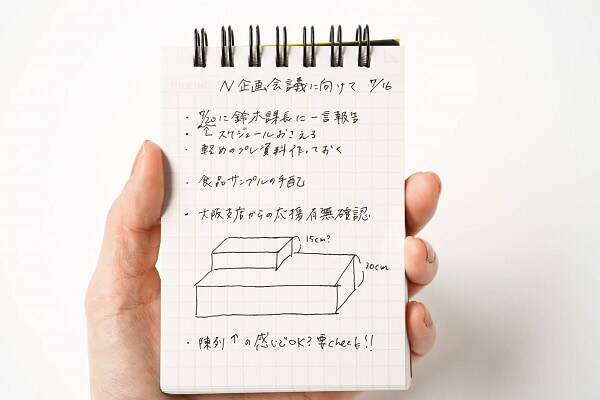 N企画会議に向けて 7/16
・7/20に鈴木課長に一言報告
・↑スケジュールおさえる
・軽めのプレ資料作っておく
・食品サンプルの手配
・大阪支店からの応援有無確認
15cm?
30cm
・陳列↑の感じでOK?要check!!